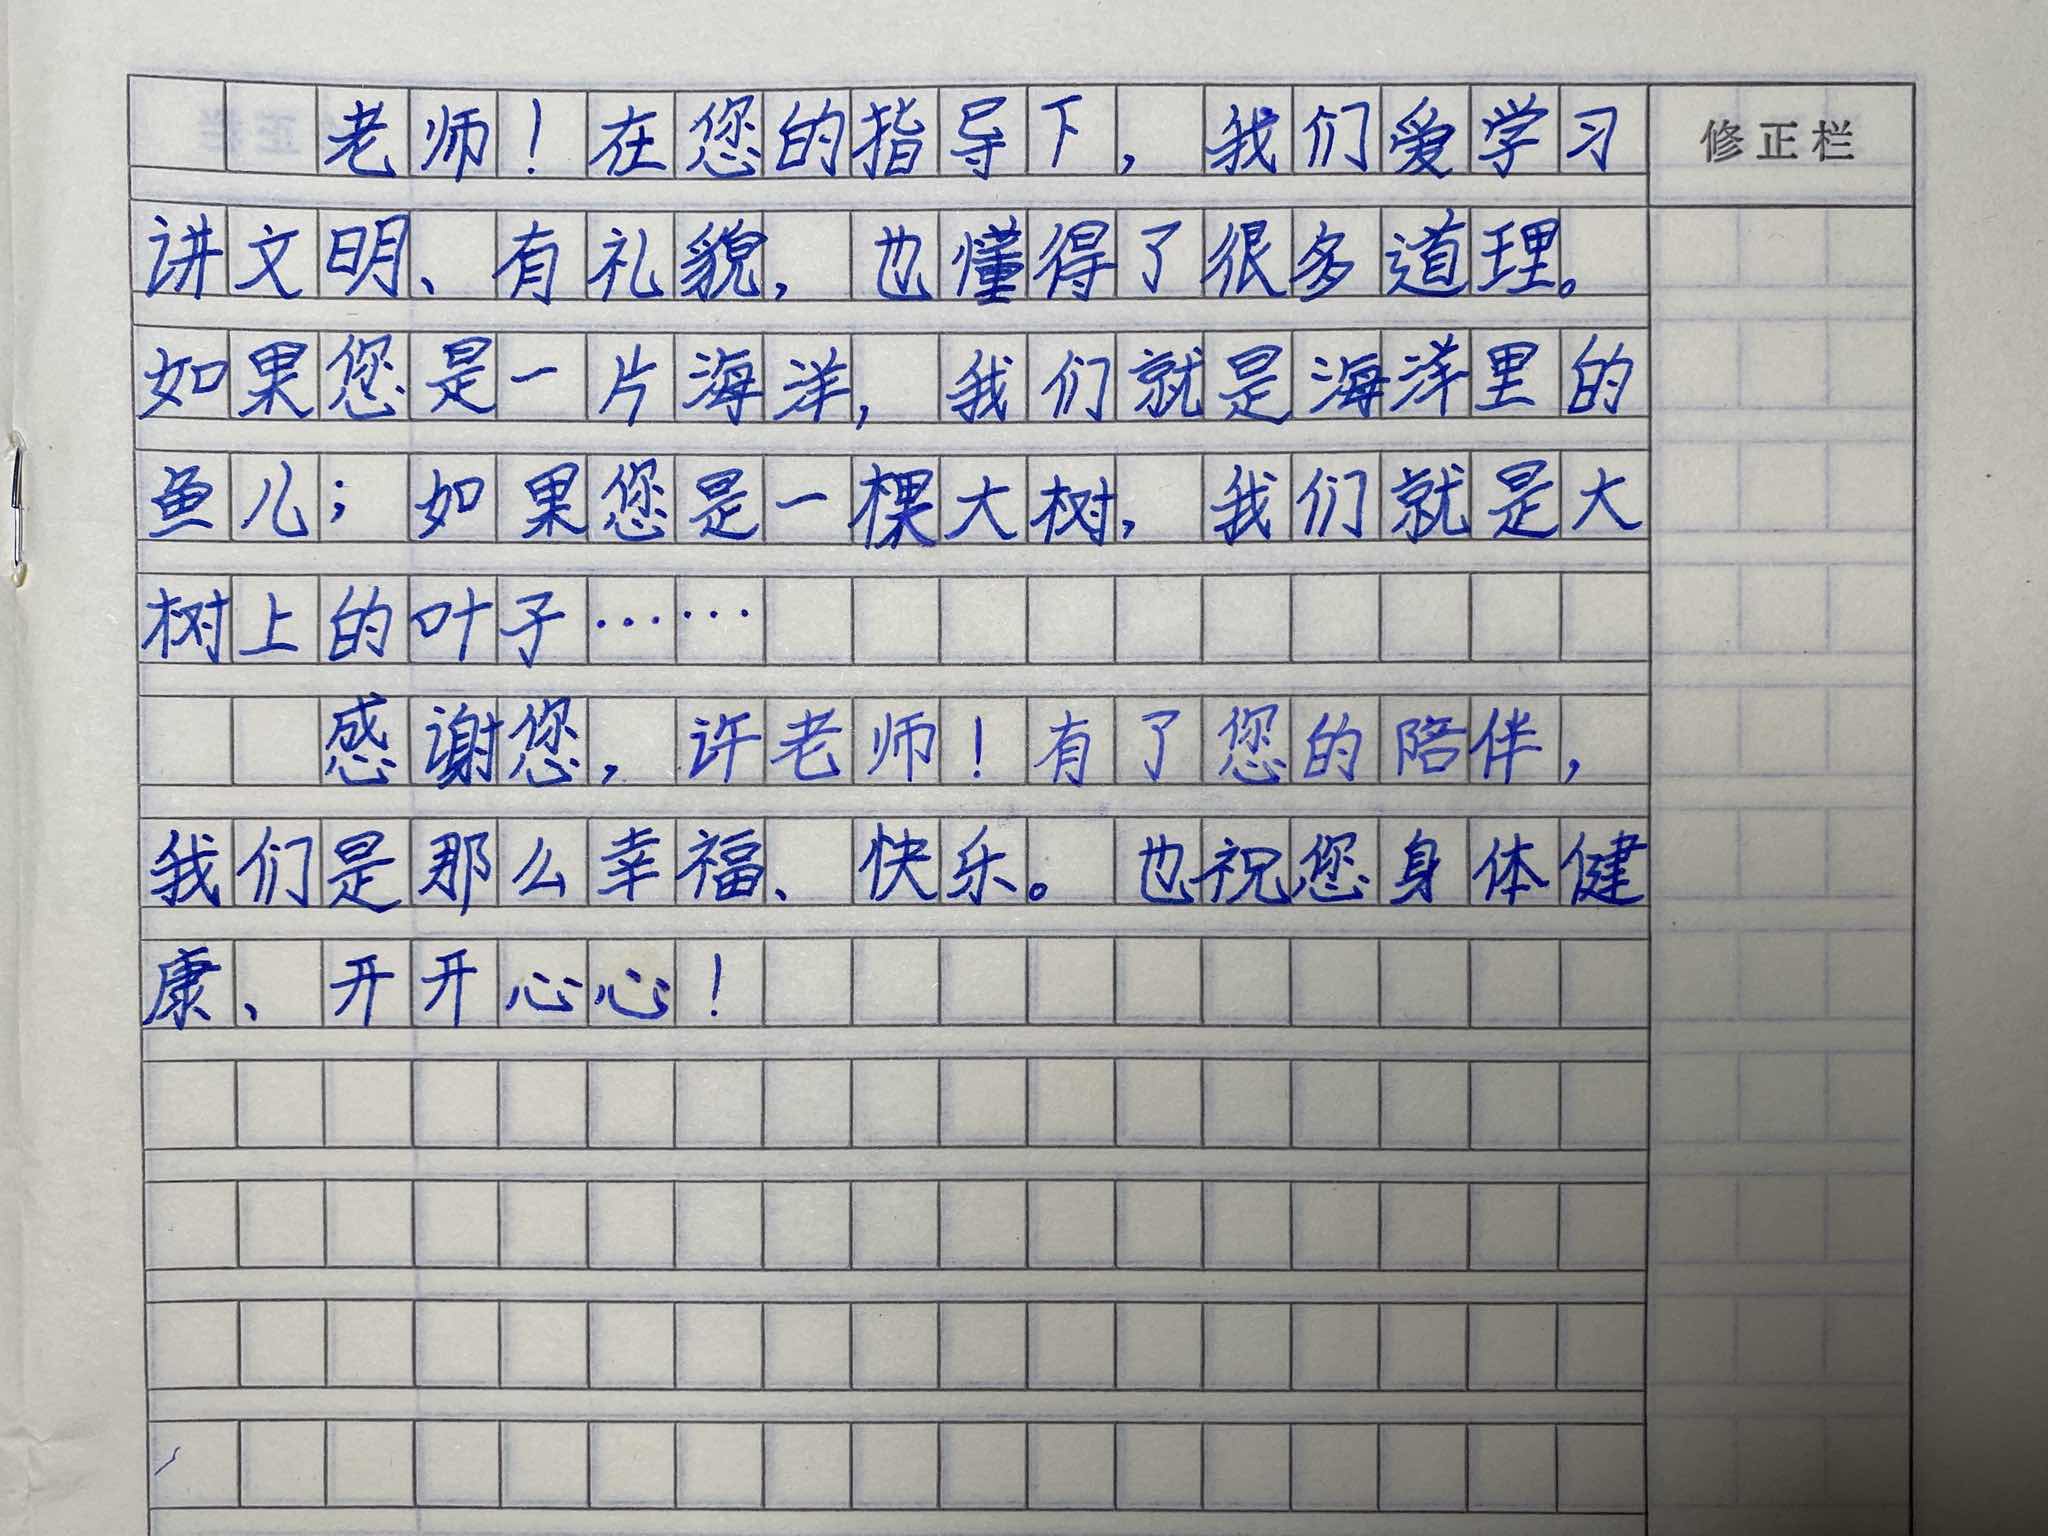 老师！在您的指导下，我们爱学习
修正栏
讲文明、有礼貌，也懂得了很多道理。
如果您是一片海洋，我们就是海洋里的
鱼儿；如果您是一棵大树，我们就是大
树上的叶子……
感谢您，许老师！有了您的陪伴，
我们是那么幸福、快乐。也祝您身体健
康、开开心心！